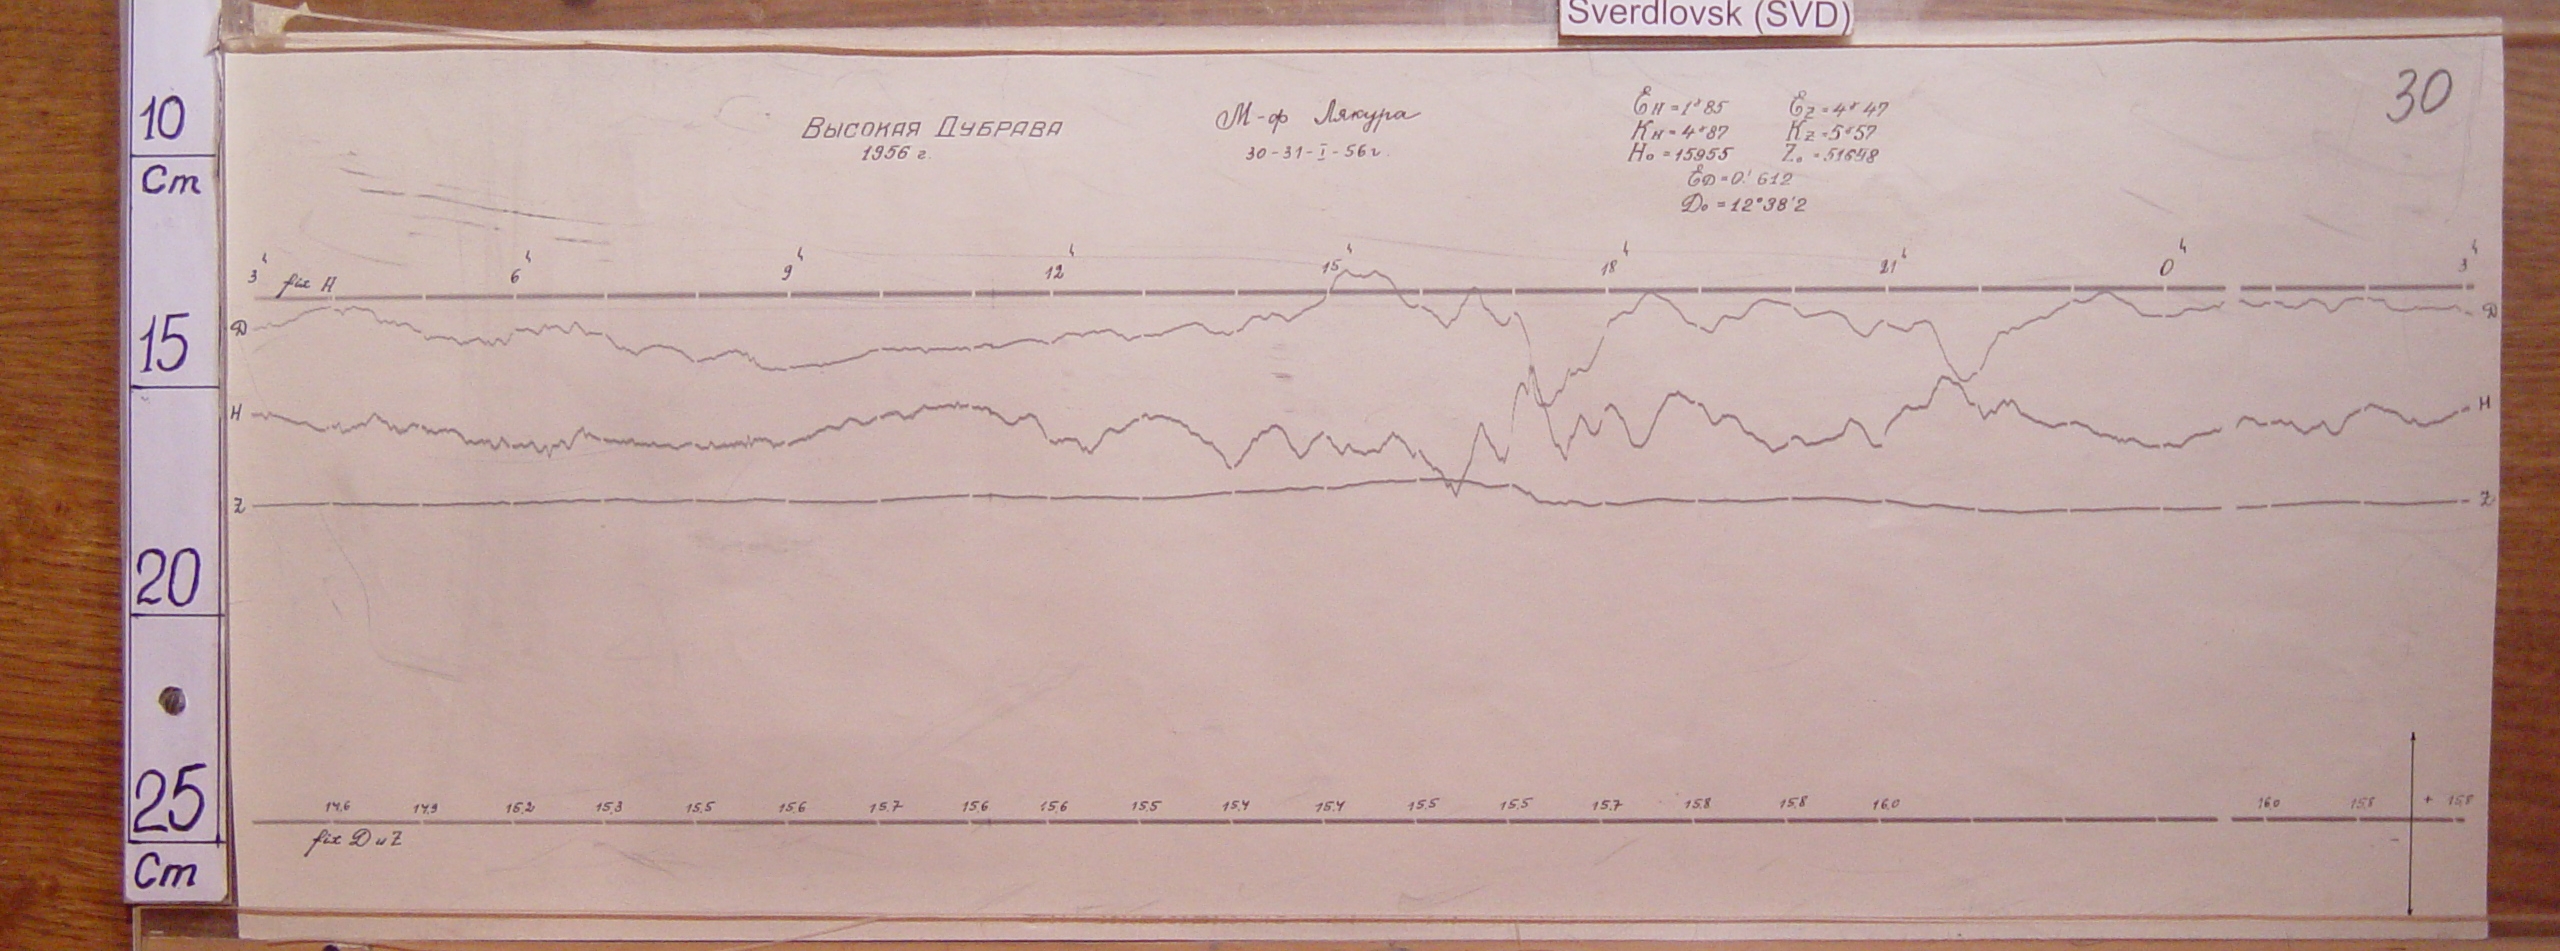 Sverdlovsk (SVD)
30
10
Cm
15
20
25
Cm
Высокая Дубрава
1956 г.
М-ф Лякура
30-31-I-56г.
Ɛн=1ᵞ85 Ɛz=4ᵞ47
Kн=4ᵞ87 Kz=5ᵞ57
H₀=15955 Z₀=51648
ƐD=0.'612
D₀=12°38'2
3ʰ 6ʰ 9ʰ 12ʰ 15ʰ 18ʰ 21ʰ 0ʰ 3ʰ
fix H
D D
H H
Z Z
14,6 14,9 15,2 15,3 15,5 15,6 15,7 15,6 15,6 15,5 15,4 15,4 15,5 15,5 15,7 15,8 15,8 16,0 16,0 15,8 + 15,8
fix D и Z -